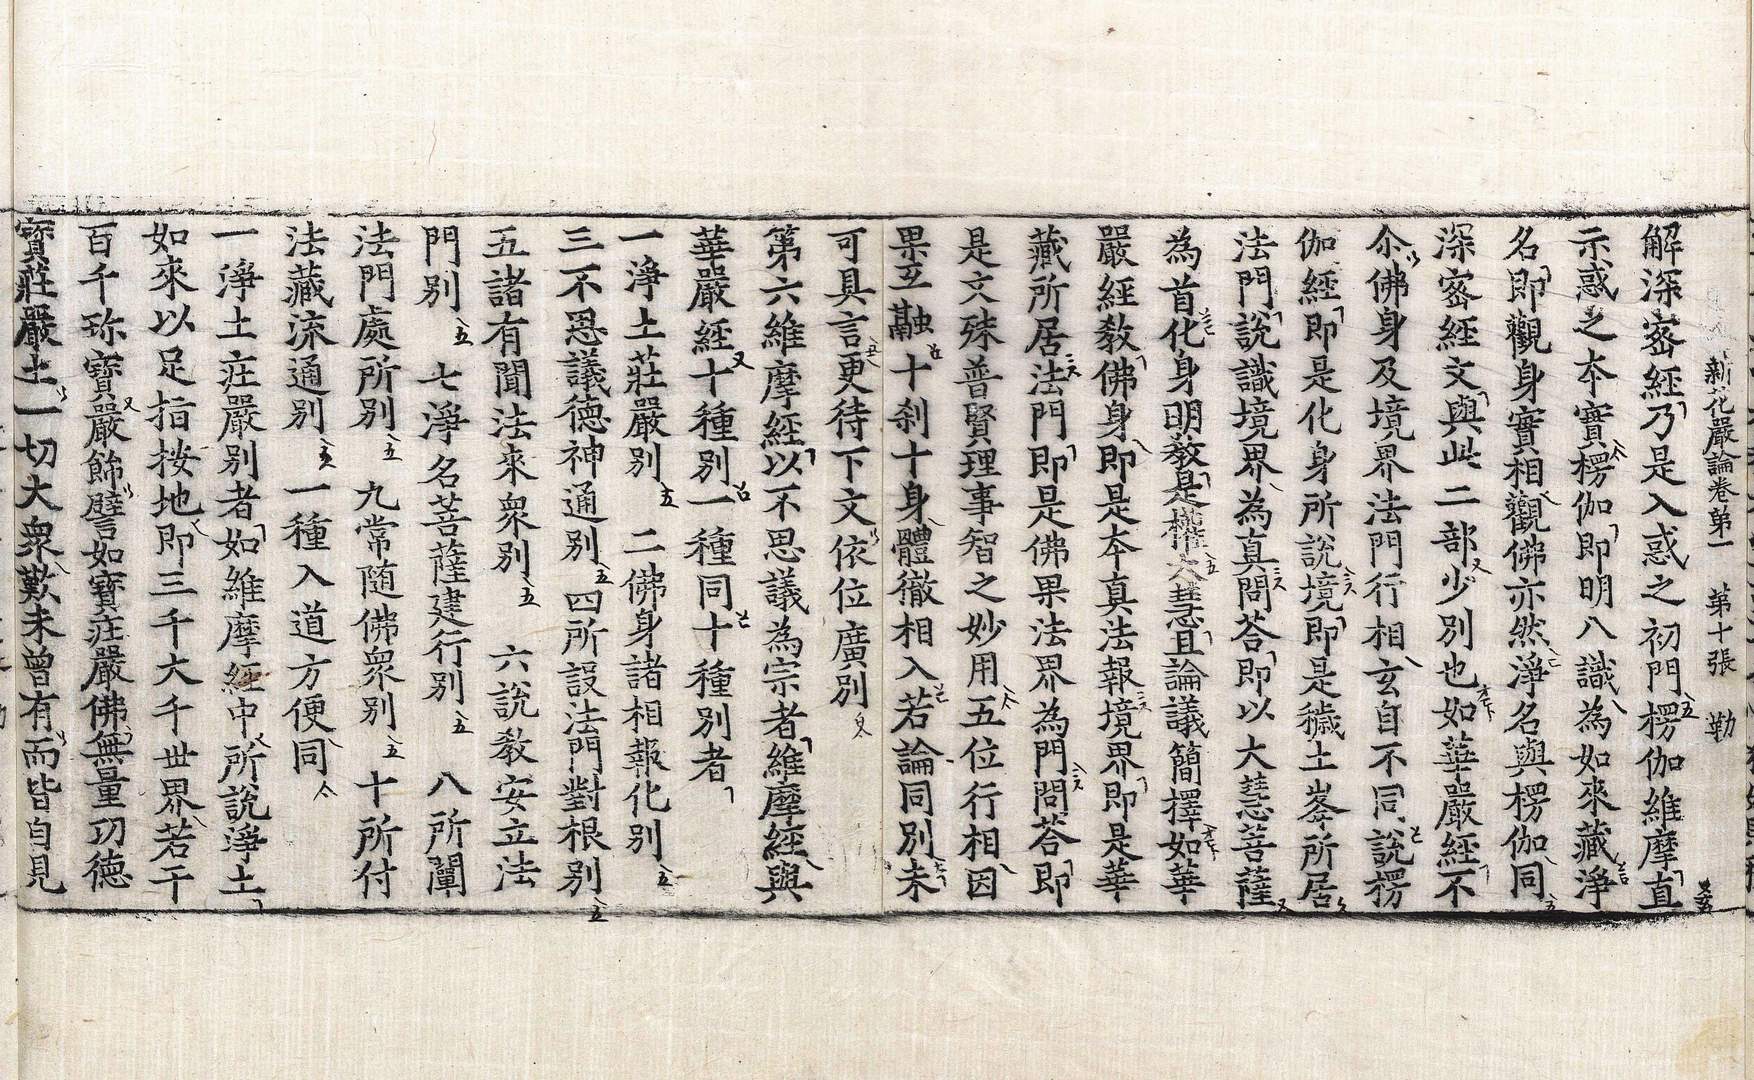 新花嚴論卷第一 第十張 勒
解深密經乃是入惑之初門楞伽維摩直
示惑之本實楞伽即明八識為如來藏淨
名即觀身實相觀佛亦然淨名與楞伽同
深密經文與此二部少別也如華嚴經不
尒佛身及境界法門行相玄自不同說楞
伽經即是化身所說境即是穢土峯所居
法門說識境界為真問荅即以大慧菩薩
為首化身明教是權大慧且論議簡擇如華
嚴經教佛身即是本真法報境界即是華
藏所居法門即是佛果法界為門問荅即
是文殊普賢理事智之妙用五位行相因
果互融十剎十身體徹相入若論同別未
可具言更待下文依位廣別
第六維摩經以不思議為宗者維摩經與
華嚴經十種別一種同十種別者
一淨土莊嚴別 二佛身諸相報化別
三不思議德神通別 四所設法門對根別
五諸有聞法來衆別 六說教安立法
門別 七淨名菩薩建行別 八所闡
法門處所別 九常随佛衆別 十所付
法藏流通別 一種入道方便同
一淨土莊嚴別者如維摩經中所說淨土
如來以足指按地即三千大千世界若干
百千珎寶嚴飾譬如寶莊嚴佛無量功德
寶莊嚴土一切大衆歎未曾有而皆自見